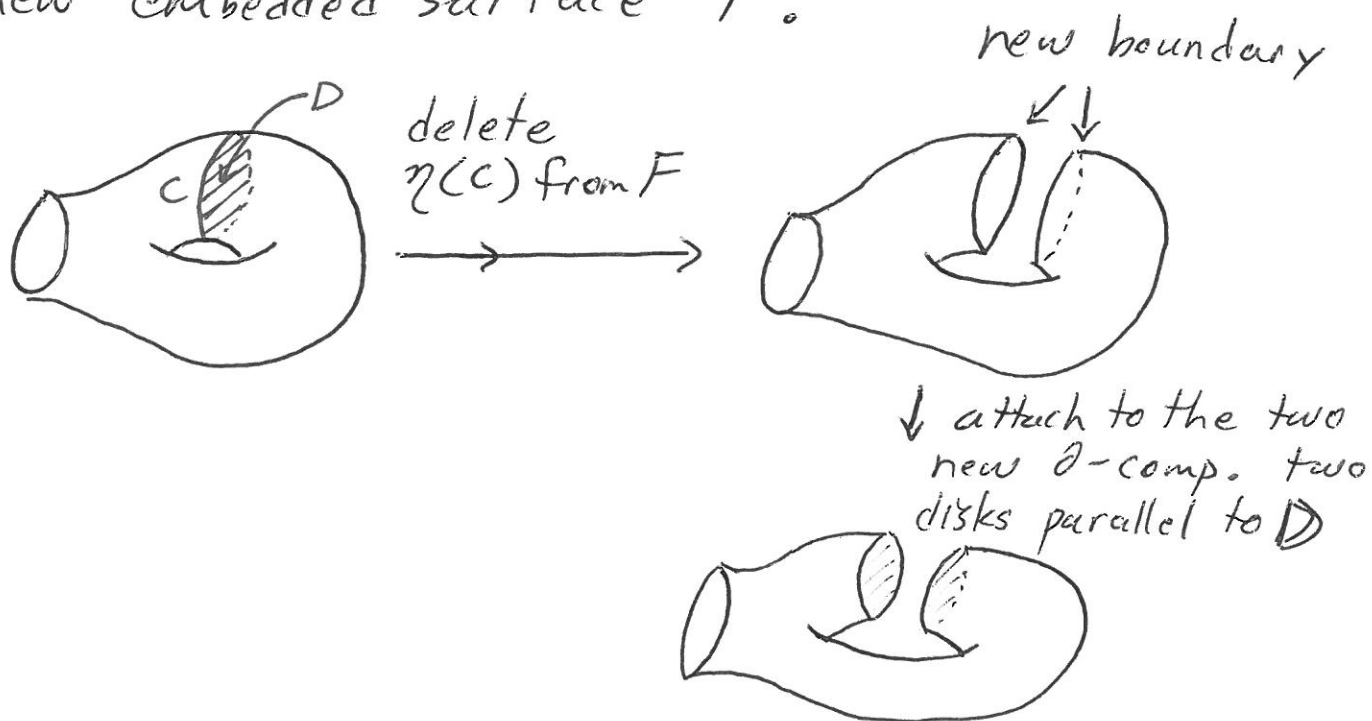 new embedded surface
new boundary
D
C
delete
η(C) from F
↓ attach to the two
new ∂-comp. two
disks parallel to D